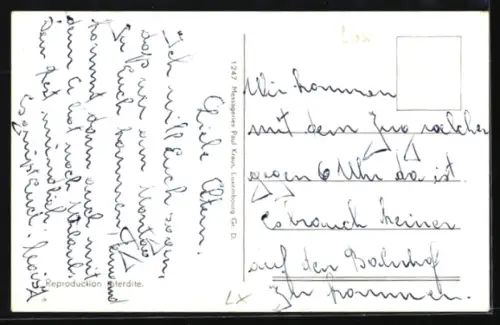 Liebe Eltern.
Ich will Euch sagen,
daß wir am Montag
zu Euch kommen.
kommt dann auch mit
denn er hat noch Urlaub.
Den Rest mündlich.
Es grüßt Euch
Wir kommen
mit dem Zug welcher
gegen 6 Uhr da ist.
Es brauch keiner
auf den Bahnhof
zu kommen.
1247 Messageries Paul Kraus, Luxembourg Gr. D.
Reproduction interdite.
Lx